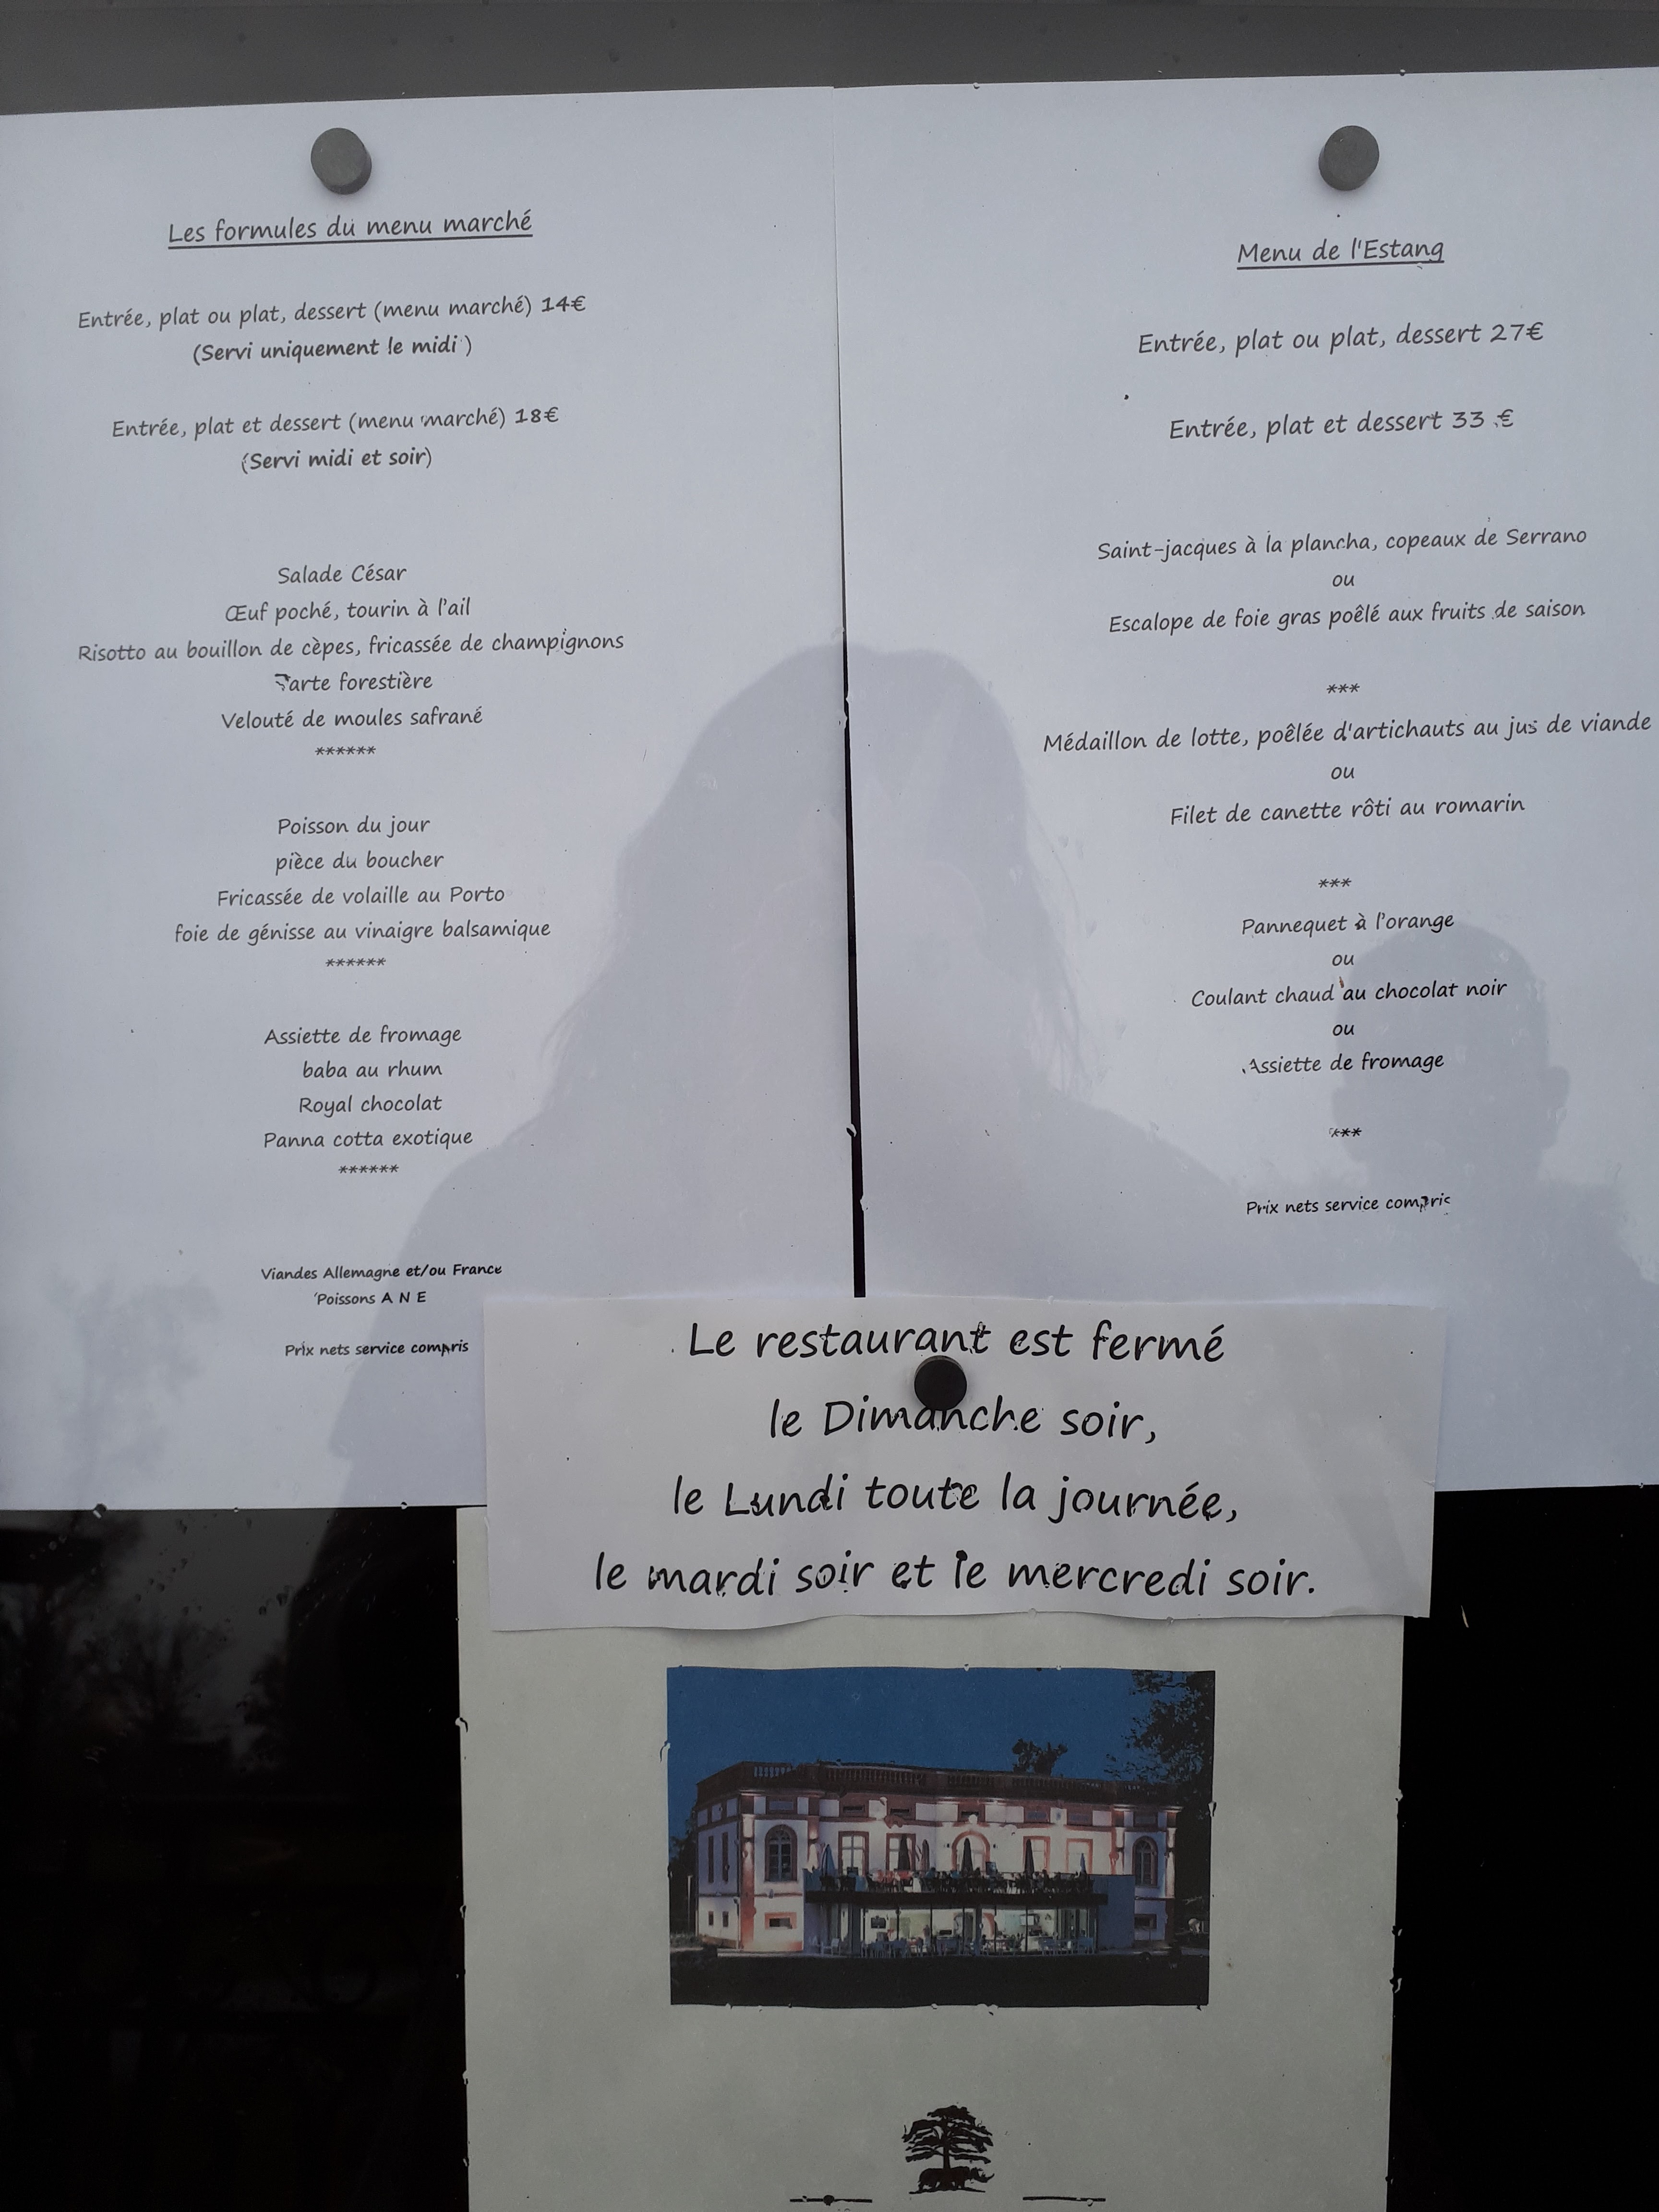 Les formules du menu marché
Entrée, plat ou plat, dessert (menu marché) 14€
(Servi uniquement le midi )
Entrée, plat et dessert (menu marché) 18€
(Servi midi et soir)
Salade César
Œuf poché, tourin à l'ail
Risotto au bouillon de cèpes, fricassée de champignons
Tarte forestière
Velouté de moules safrané
******
Poisson du jour
pièce du boucher
Fricassée de volaille au Porto
foie de génisse au vinaigre balsamique
******
Assiette de fromage
baba au rhum
Royal chocolat
Panna cotta exotique
******
Viandes Allemagne et/ou France
Poissons A N E
Prix nets service compris
Menu de l'Estang
Entrée, plat ou plat, dessert 27€
Entrée, plat et dessert 33 €
Saint-jacques à la plancha, copeaux de Serrano
ou
Escalope de foie gras poêlé aux fruits de saison
***
Médaillon de lotte, poêlée d'artichauts au jus de viande
ou
Filet de canette rôti au romarin
***
Pannequet à l'orange
ou
Coulant chaud au chocolat noir
ou
Assiette de fromage
***
Prix nets service compris
Le restaurant est fermé
le Dimanche soir,
le Lundi toute la journée,
le mardi soir et le mercredi soir.